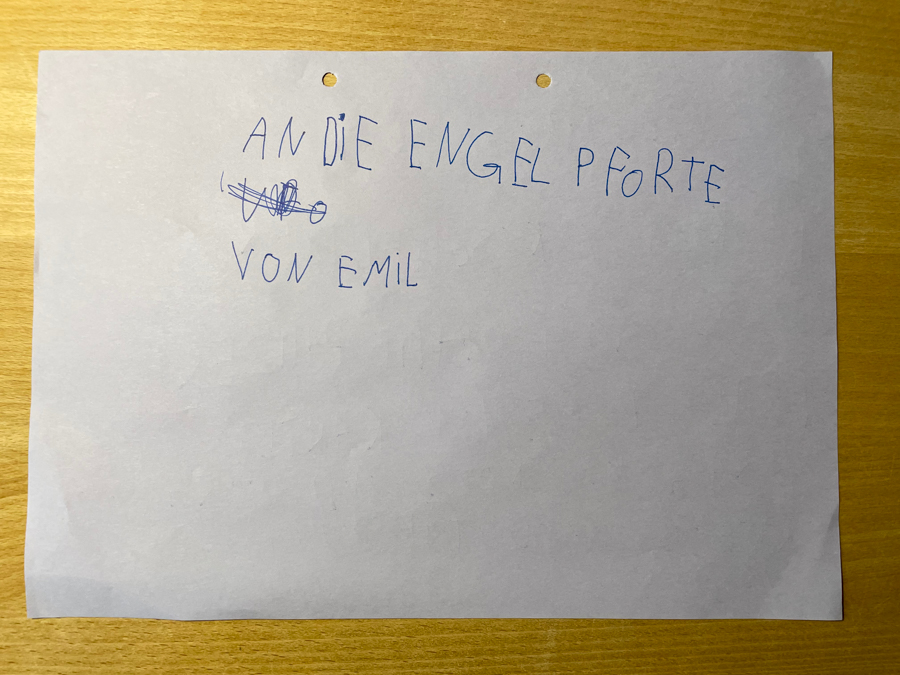 AN DiE ENGEL PFORTE
VON EMiL